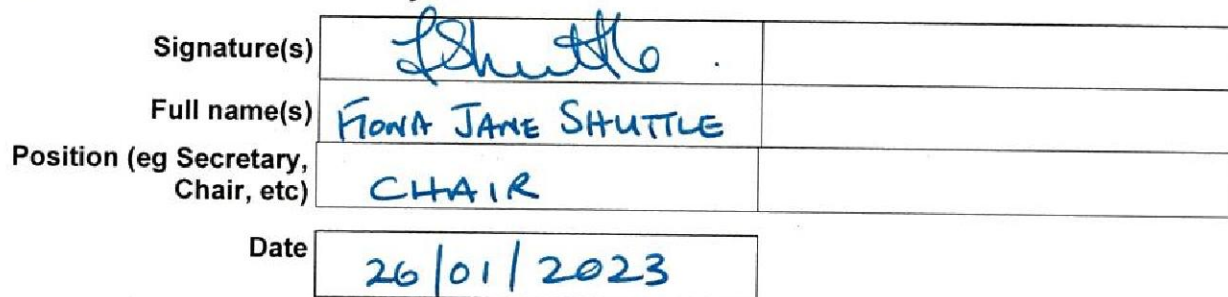 Signature(s) FShuttle
Full name(s) FIONA JANE SHUTTLE
Position (eg Secretary,
Chair, etc) CHAIR
Date 26/01/2023